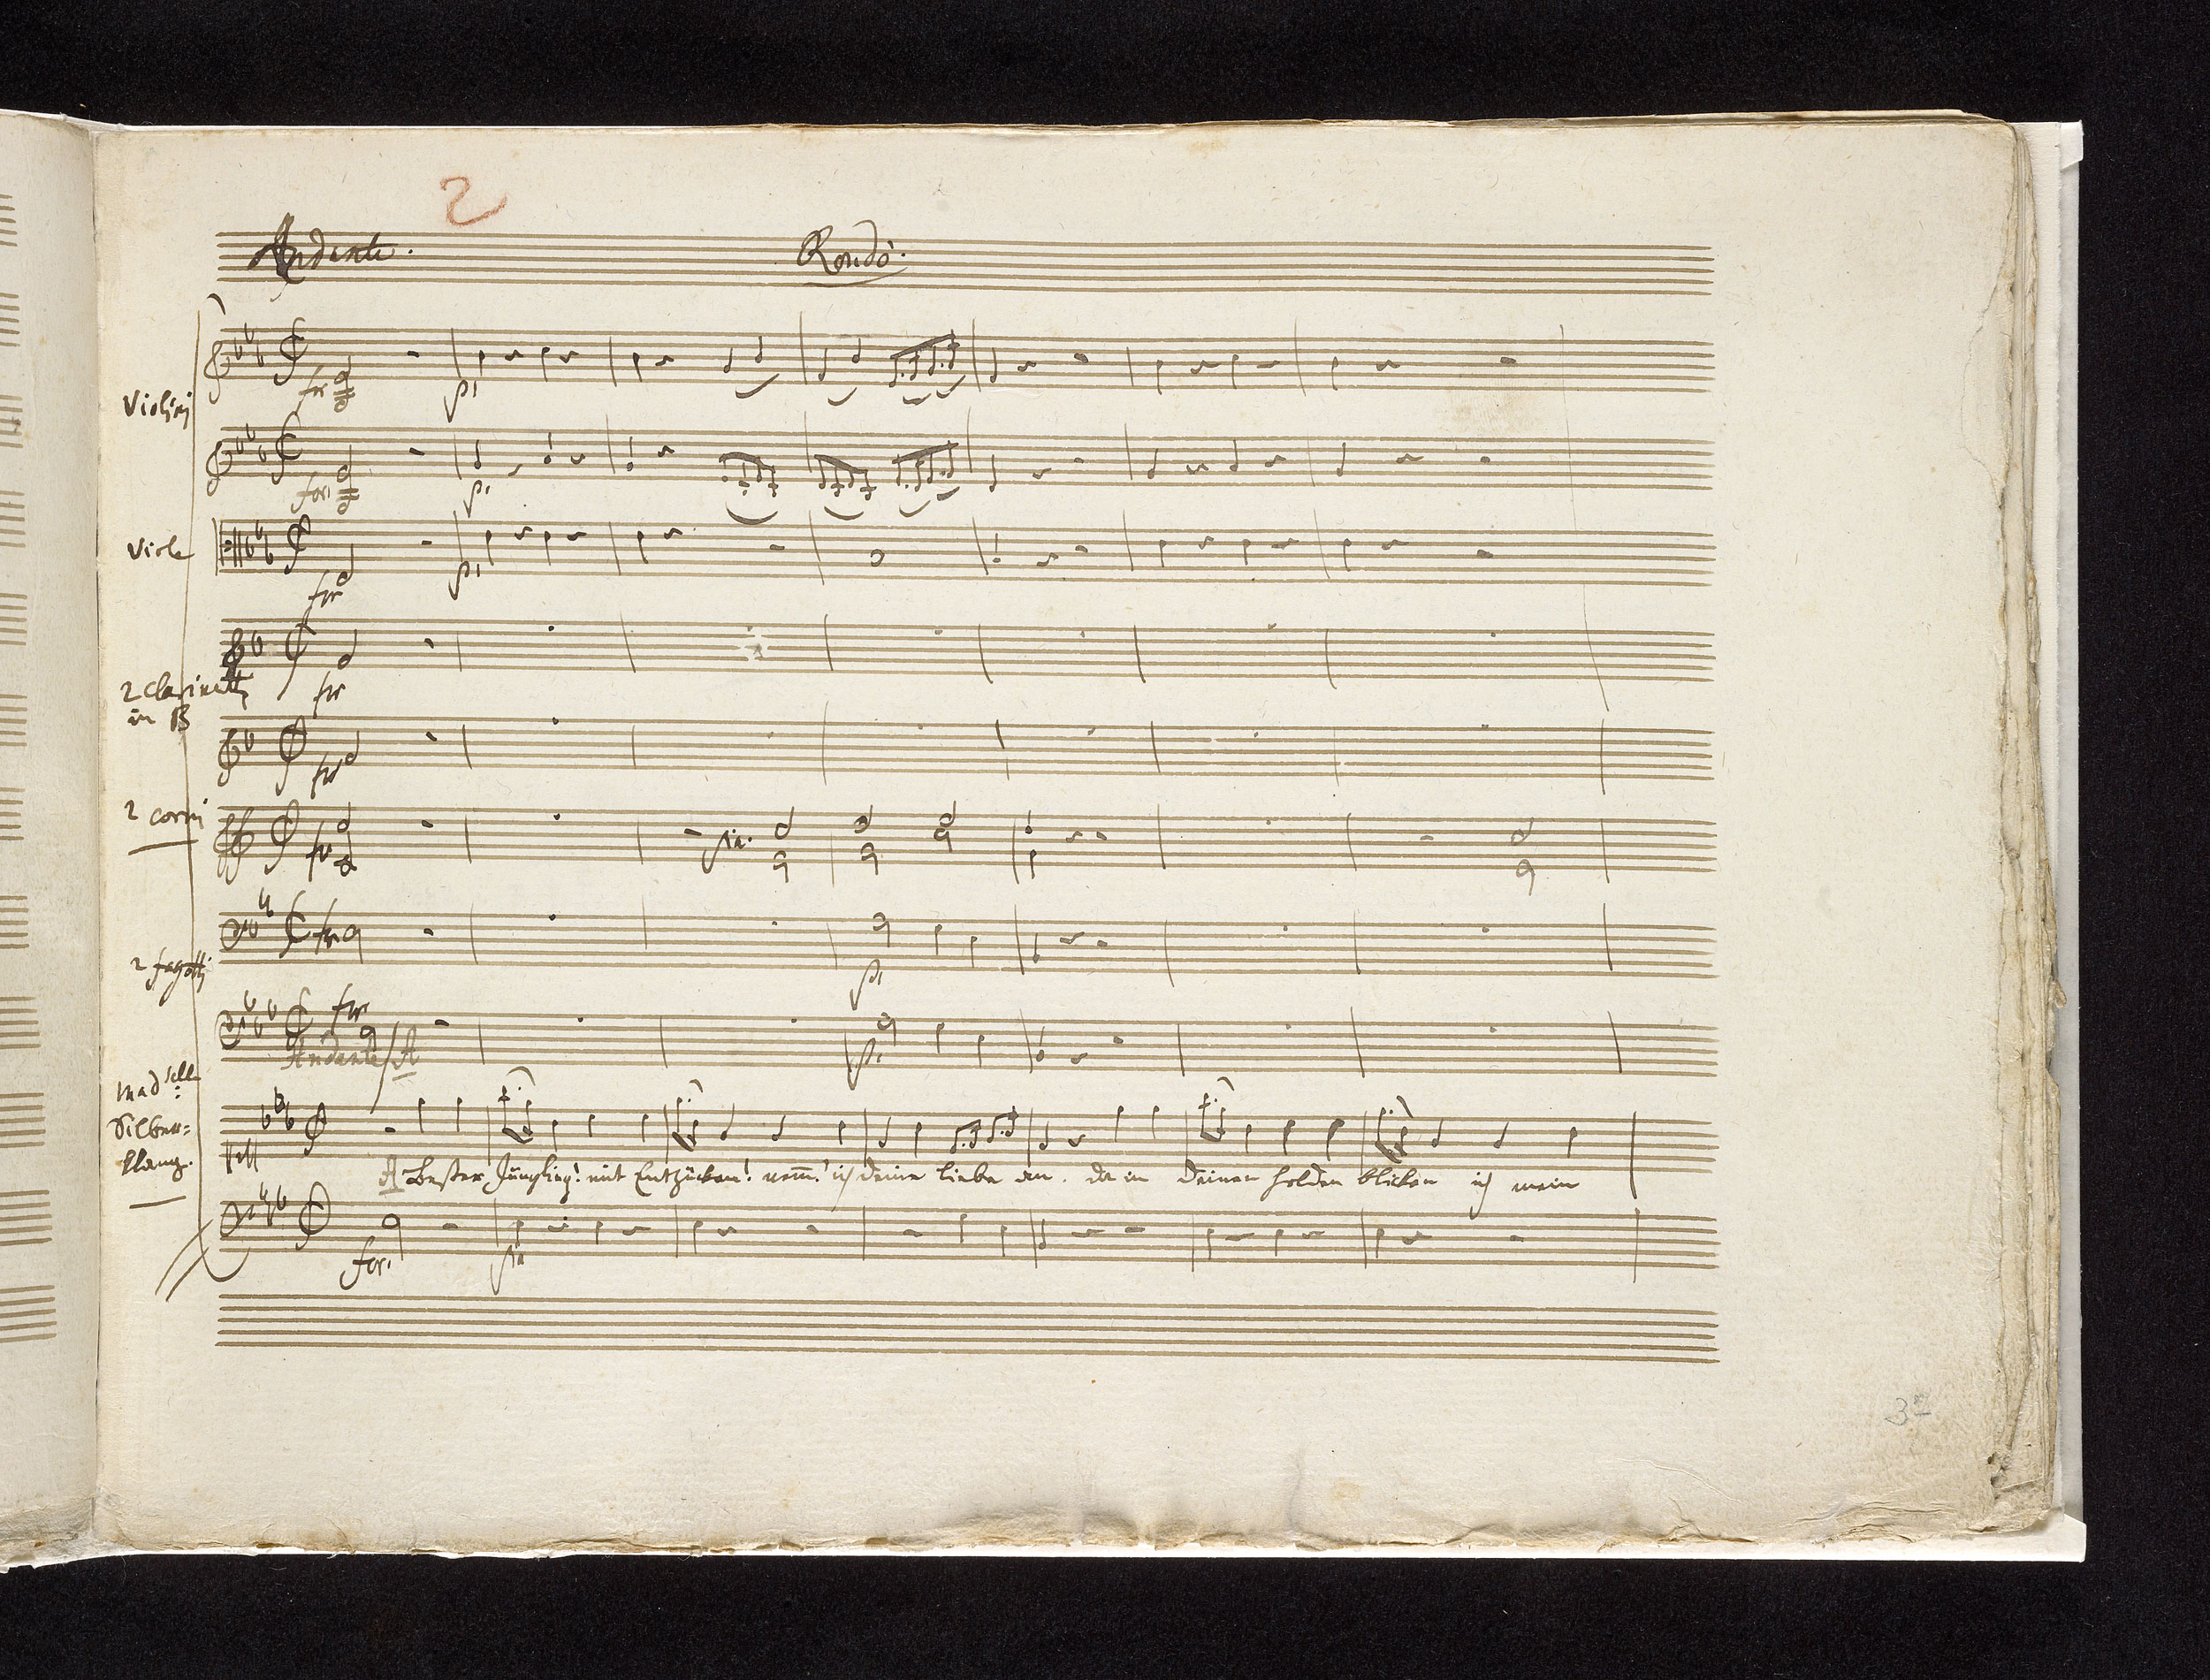 2
Andante. Rondò.
Violini
for: p:
for: p:
Viole
for p:
2 clarinetti
in B
for
for
2 corni
for pia:
for p:
2 fagotti
for p:
Andante / A
Mad:selle
Silber=
klang.
A Bester Jüngling! mit Entzücken! nem̅! ich deine liebe an. da in deinen holden blicken ich mein
for: pia
3